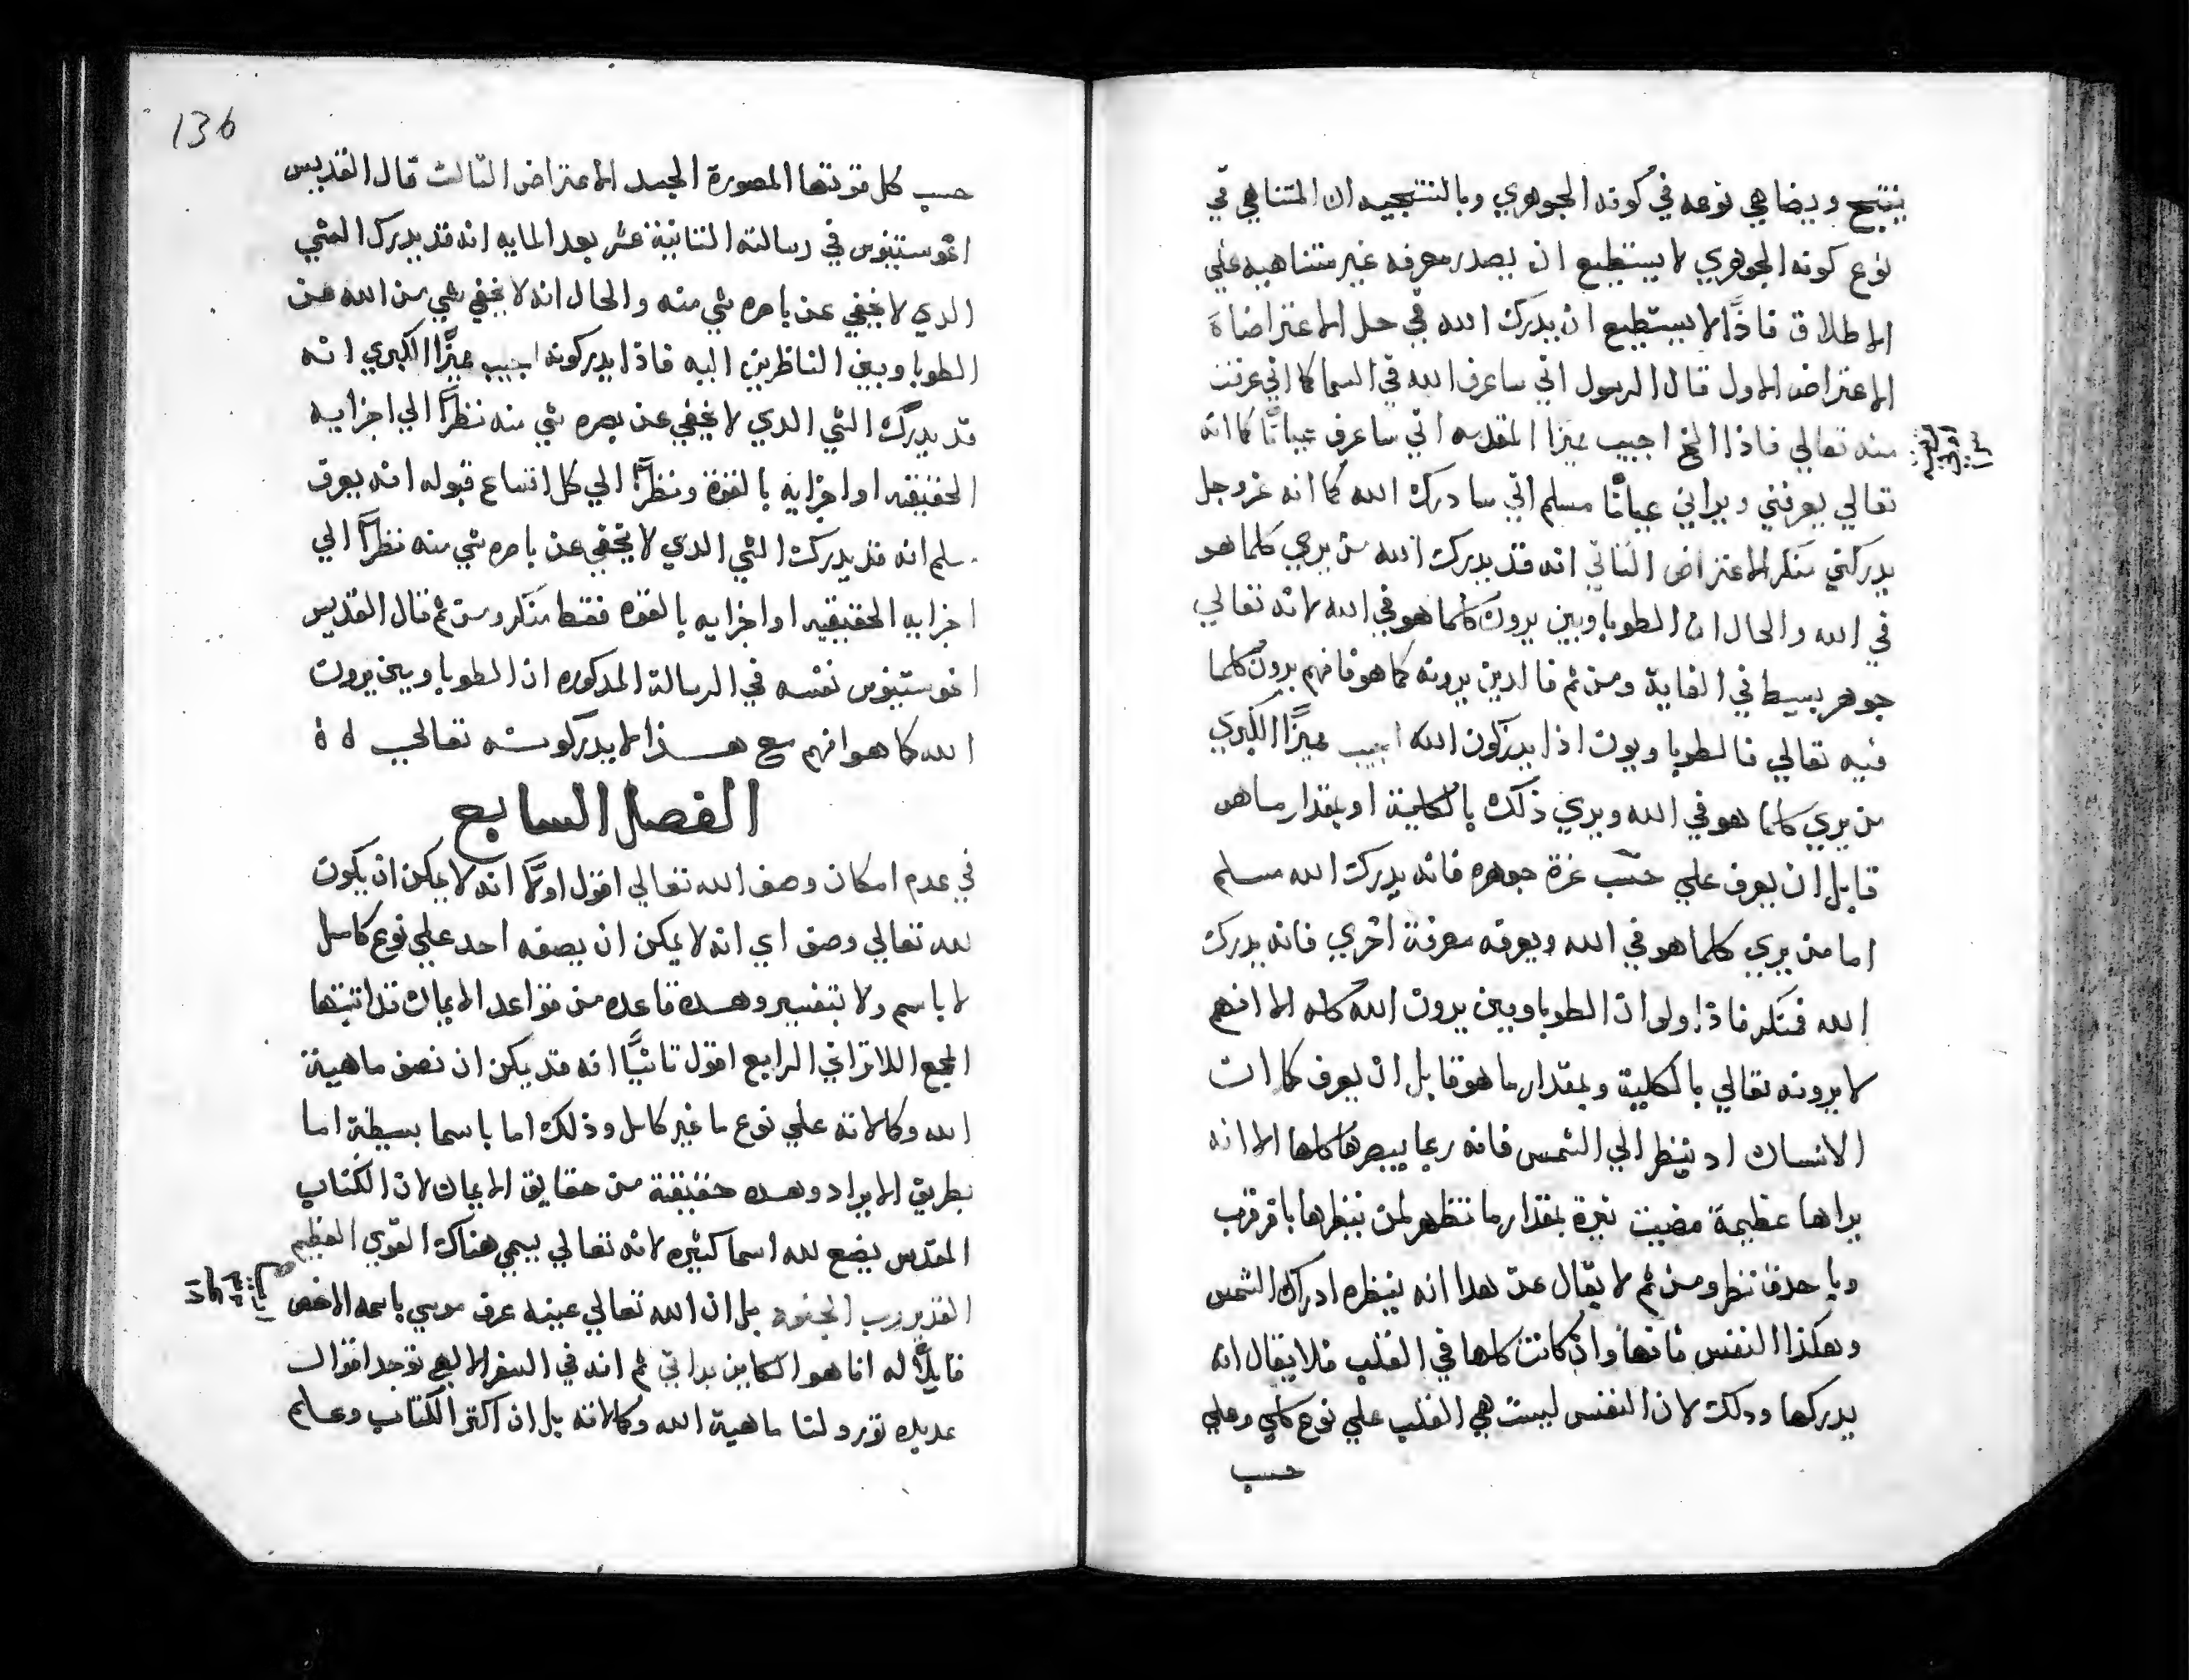 ينتج ويضاهي نوعه في كونه الجوهري وبالنتيجه ان المتناهي في
نوع كونه الجوهري لا يستطيع ان يصدر معرفه غير متناهيه علي
الاطلاق فاذًا لا يستطيع ان يدرك الله في حل الاعتراضاة
الاعتراض الاول قال الرسول اني ساعرف الله في السما كما اني عرفت
منه تعالي فاذا الخ اجيب ميزا المقدمه اني ساعرف عيانًا كما انه
تعالي يعرفني ويراني عيانًا مسلم اني سادرك الله كما انه عز وجل
يدركني منكر الاعتراض الثاني انه قد يدرك الله من يري كلما هو
في الله والحال ان الطوباويين يرون كلما هو في الله لانه تعالي
جوهر بسيط في الغاية ومن ثم فالدين يرونه كما هو فانهم يرون كلما
فيه تعالي فالطوباويون اذا يدركون الله اجيب ميزًا الكبري
من يري كلما هو في الله ويري ذلك بالكلية او بمقدار ما هو
قابل ان يعرف علي حسب عزة جوهره فانه يدرك الله مسلم
اما من يري كلما هو في الله ويعرفه معرفة اخري فانه يدرك
الله فمنكر فاذا ولو ان الطوباويين يرون الله كله الا انهم
لا يرونه تعالي بالكلية وبمقدار ما هو قابل ان يعرف كما ان
الانسان اد ينظر الي الشمس فانه ربما يبصرها كلها الا انه
يراها عظيمة مضيت نيرة بمقدار ما تظهر لمن ينظرها باقر قرب
وباحدق نظر ومن ثم لا يقال عن هدا انه ينظره ادرك الشمس
وهكذا النفس فانها وان كانت كلها في القلب فلا يقال انه
يدركها ودلك لان النفس ليست هي القلب علي نوع كلي وعلي
حسب
136
حسب كل قوتها المصورة الجسد الاعتراض الثالث قال القديس
اغوستينوس في رسالته الثانية عشر بعد المايه انه قد يدرك الشي
الدي لا يخفي عن باصره شي منه والحال انه لا يخفي شي من الله عن
الطوباويين الناظرين اليه فاذا يدركونه اجيب ميزًا الكبري انه
قد يدرك الشي الدي لا يخفي عن بصره شي منه نظرًا الي اجزايه
الحقيقيه او اجزايه بالقوة ونظرًا الي كل اتساع قبوله انه يعرف
مسلم انه قد يدرك الشي الدي لا يخفي عن باصره شي منه نظرًا الي
اجزايه الحقيقيه او اجزايه بالقوه فقط منكر ومن ثم قال القديس
اغوستينوس نفسه في الرسالة المدكوره ان الطوباويين يرون
الله كما هو انهم مع هذا لا يدركونه تعالي ه ه
الفصل السابع
في عدم امكان وصف الله تعالي اقول اولًا انه لا يمكن ان يكون
لله تعالي وصف اي انه لا يمكن ان يصفه احد علي نوع كامل
لا باسم ولا بتفسير وهده قاعده من قواعد الايمان قد اثبتها
المجمع اللاتراني الرابع اقول ثانيًا انه قد يمكن ان نصف ماهية
الله وكمالاته علي نوع ما غير كامل وذلك اما باسما بسيطة اما
بطريق الايراد وهده حقيقة من حقايق الايمان لان الكتاب
المقدس يضع لله اسما كثيره لانه تعالي يسمي هناك القوي العظيم
القدير رب الجنود بل ان الله تعالي عينه عرف موسي باسمه الاخص
قايلًا له انا هو الكاين براتي ثم انه في السفر الالهي توجد اقوال
عديده تورد لنا ماهية الله وكمالاته بل ان اكثر الكتاب وعلم